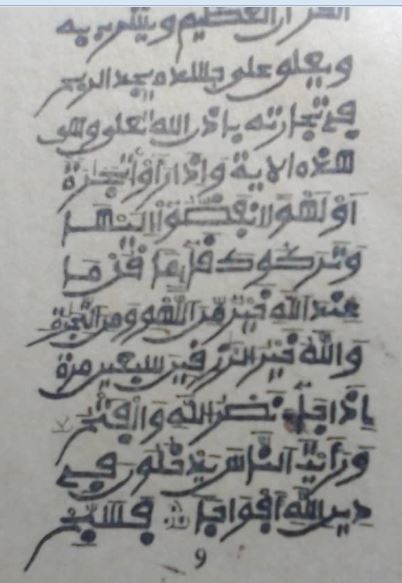 القرءان العظيم
على جسده يجد الربح
في تجارته باذن الله تعلى وهي
هذه الاية وَإذا رَأوْا تِجَٰرَةً
أَوْ لَهْوًا اِنفَضُّوٓا إِلَيْهَا
وَتَرَكُوكَ قَآئِمًا قُلْ مَا
عِندَ اللَّهِ خَيْرٌ مِّنَ اللَّهْوِ وَمِنَ التِّجَٰرَةِ
وَاللَّهُ خَيْرُ الرَّٰزِقِينَ سبعين مرة
إِذَا جَآءَ نَصْرُ اللَّهِ وَالْفَتْحُ
وَرَأَيْتَ النَّاسَ يَدْخُلُونَ فِي
دِينِ اللَّهِ أَفْوَاجًا فَسَبِّحْ
9